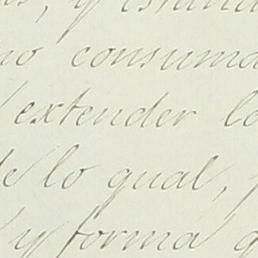 y estan
no consuma
extender lo
de lo qual,
y forma q